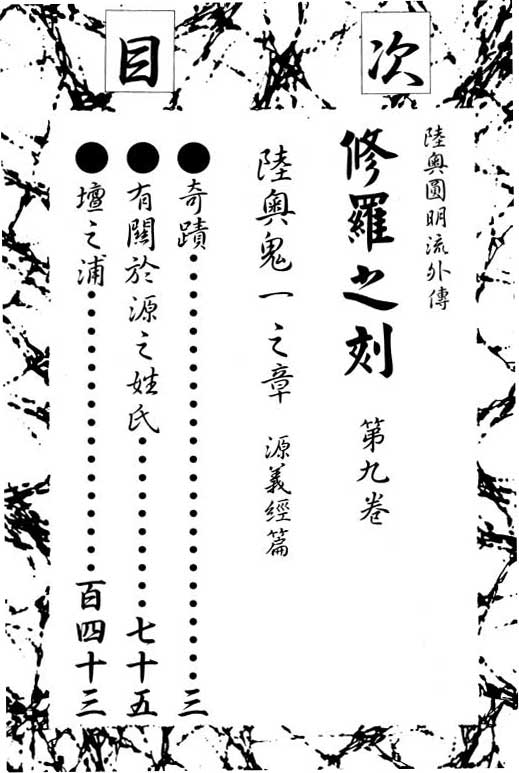 目次
陸奧圓明流外傳
修羅之刻 第九卷
陸奧鬼一之章 源義經篇
●奇蹟・・・・・・・・・・・・・・・・・・・・・・・三
●有關於源之姓氏・・・・・・・・・・七十五
●壇之浦・・・・・・・・・・・・・・・・百四十三